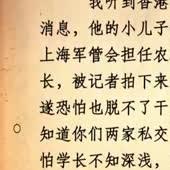 我听到香港
消息，他的小儿子
上海军管会任农
长，被记者拍下来
遂恐怕也脱不了干
知道你们两家私交
怕学长不知深浅，